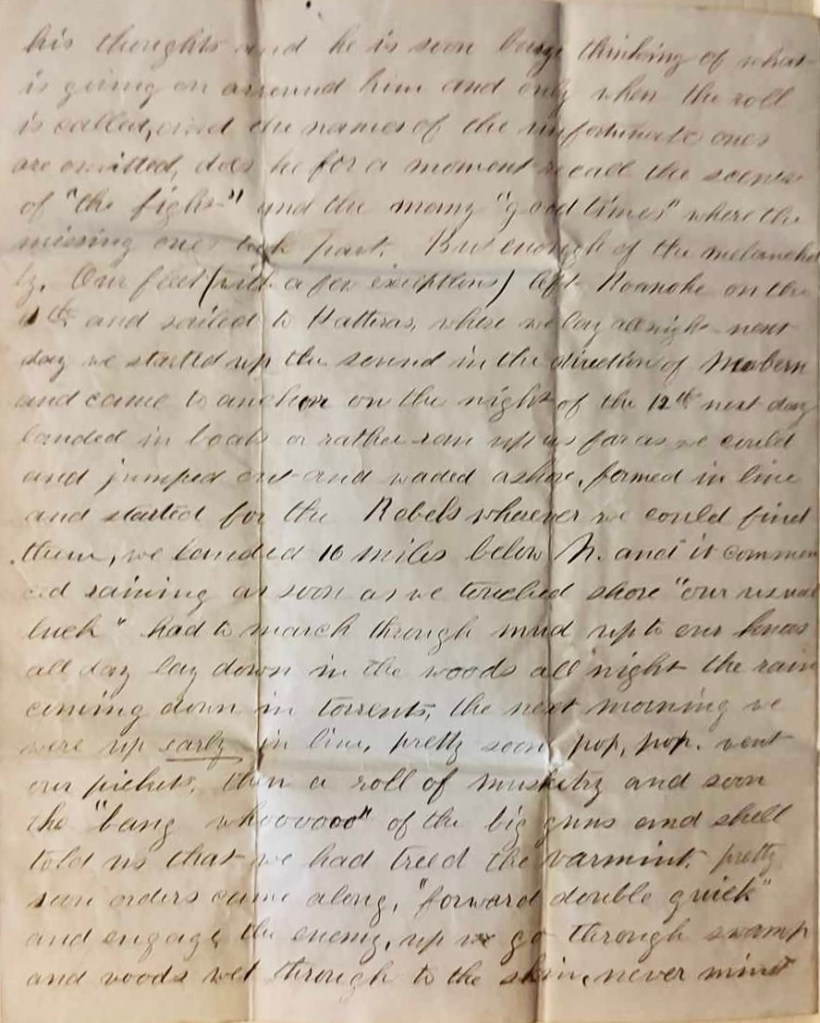 his thoughts and he is soon busy thinking of what
is going on arround him and only when the roll
is called, and the names of the unfortunate ones
are omitted, does he for a moment recall the scenes
of "the fight" and the many "good times" where the
missing ones took part. But enough of the melancho
ly. Our fleet (with a few exceptions) left Roanoke on the
and sailed to Hatteras, where we lay all night next
day we started up the sound in the direction of
and came to anchor on the night of the 12th next day
landed in boats or rather ran up as far as we could
and jumped out and waded ashore, formed in line
and started for the Rebels wherever we could find
them, we landed 16 miles below N. and it commen
ced raining as soon as we touched shore "our usual
luck" had to march through mud up to our knees
all day lay down in the woods all night the rain
coming down in torrents, the next morning we
were up early in line, pretty soon pop, pop. went
our pickets, then a roll of musketry and soon
the "bang whoovooo" of the big guns and shell
told us that we had treed the varmint. pretty
soon orders came along, "forward double quick"
and engage the enemy, up we go through swamp
and woods wet through to the skin, never mind